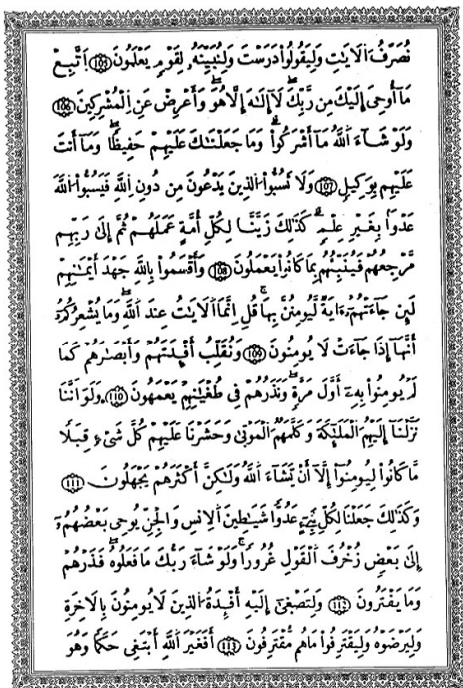 نُصَرِّفُ اُ۬لَايَٰتِ وَلِيَقُولُواْ دَرَسْتَ وَلِنُبَيِّنَهُۥ لِقَوْمٖ يَعْلَمُونَ ١٠٥ اَ۪تَّبِعْ
مَآ أُوحِيَ إِلَيْكَ مِن رَّبِّكَ لَآ إِلَٰهَ إِلَّا هُوَ وَأَعْرِضْ عَنِ اِ۬لْمُشْرِكِينَ ١٠٦
وَلَوْ شَآءَ اَ۬للَّهُ مَآ أَشْرَكُواْ وَمَا جَعَلْنَٰكَ عَلَيْهِمْ حَفِيظاٗ وَمَآ أَنتَ
عَلَيْهِم بِوَكِيلٖ ١٠٧ وَلَا تَسُبُّواْ اُ۬لذِينَ يَدْعُونَ مِن دُونِ اِ۬للَّهِ فَيَسُبُّواْ اُ۬للَّهَ
عَدْواَۢ بِغَيْرِ عِلْمٖ كَذَٰلِكَ زَيَّنَّا لِكُلِّ أُمَّةٍ عَمَلَهُمْ ثُمَّ إِلَىٰ رَبِّهِم
مَّرْجِعُهُمْ فَيُنَبِّئُهُم بِمَا كَانُواْ يَعْمَلُونَ ١٠٨ وَأَقْسَمُواْ بِاللَّهِ جَهْدَ أَيْمَٰنِهِمْ
لَئِن جَآءَتْهُمُۥٓ ءَايَةٞ لَّيُومِنُنَّ بِهَا قُلِ اِنَّمَا اَ۬لَايَٰتُ عِندَ اَ۬للَّهِ وَمَا يُشْعِرُكُمُۥٓ
أَنَّهَآ إِذَا جَآءَتْ لَا يُومِنُونَ ١٠٩ وَنُقَلِّبُ أَفْـِٕدَتَهُمْ وَأَبْصَٰرَهُمْ كَمَا
لَمْ يُومِنُواْ بِهِۦٓ أَوَّلَ مَرَّةٖ وَنَذَرُهُمْ فِي طُغْيَٰنِهِمْ يَعْمَهُونَ ١١٠ وَلَوَ اَنَّنَا
نَزَّلْنَآ إِلَيْهِمُ اُ۬لْمَلَٰٓئِكَةَ وَكَلَّمَهُمُ اُ۬لْمَوْتَىٰ وَحَشَرْنَا عَلَيْهِمْ كُلَّ شَےْءٖ قِبَلاٗ
مَّا كَانُواْ لِيُومِنُوٓاْ إِلَّآ أَنْ يَّشَآءَ اَ۬للَّهُ وَلَٰكِنَّ أَكْثَرَهُمْ يَجْهَلُونَ ١١١
وَكَذَٰلِكَ جَعَلْنَا لِكُلِّ نَبِيٓءٍ عَدُوّاٗ شَيَٰطِينَ اَ۬لِانسِ وَالْجِنِّ يُوحِي بَعْضُهُمُۥٓ
إِلَىٰ بَعْضٖ زُخْرُفَ اَ۬لْقَوْلِ غُرُوراٗ وَلَوْ شَآءَ رَبُّكَ مَا فَعَلُوهُ فَذَرْهُمْ
وَمَا يَفْتَرُونَ ١١٢ وَلِتَصْغَىٰٓ إِلَيْهِ أَفْـِٕدَةُ اُ۬لذِينَ لَا يُومِنُونَ بِالَاخِرَةِ
وَلِيَرْضَوْهُ وَلِيَقْتَرِفُواْ مَا هُم مُّقْتَرِفُونَ ١١٣ أَفَغَيْرَ اَ۬للَّهِ أَبْتَغِي حَكَماٗ وَهُوَ